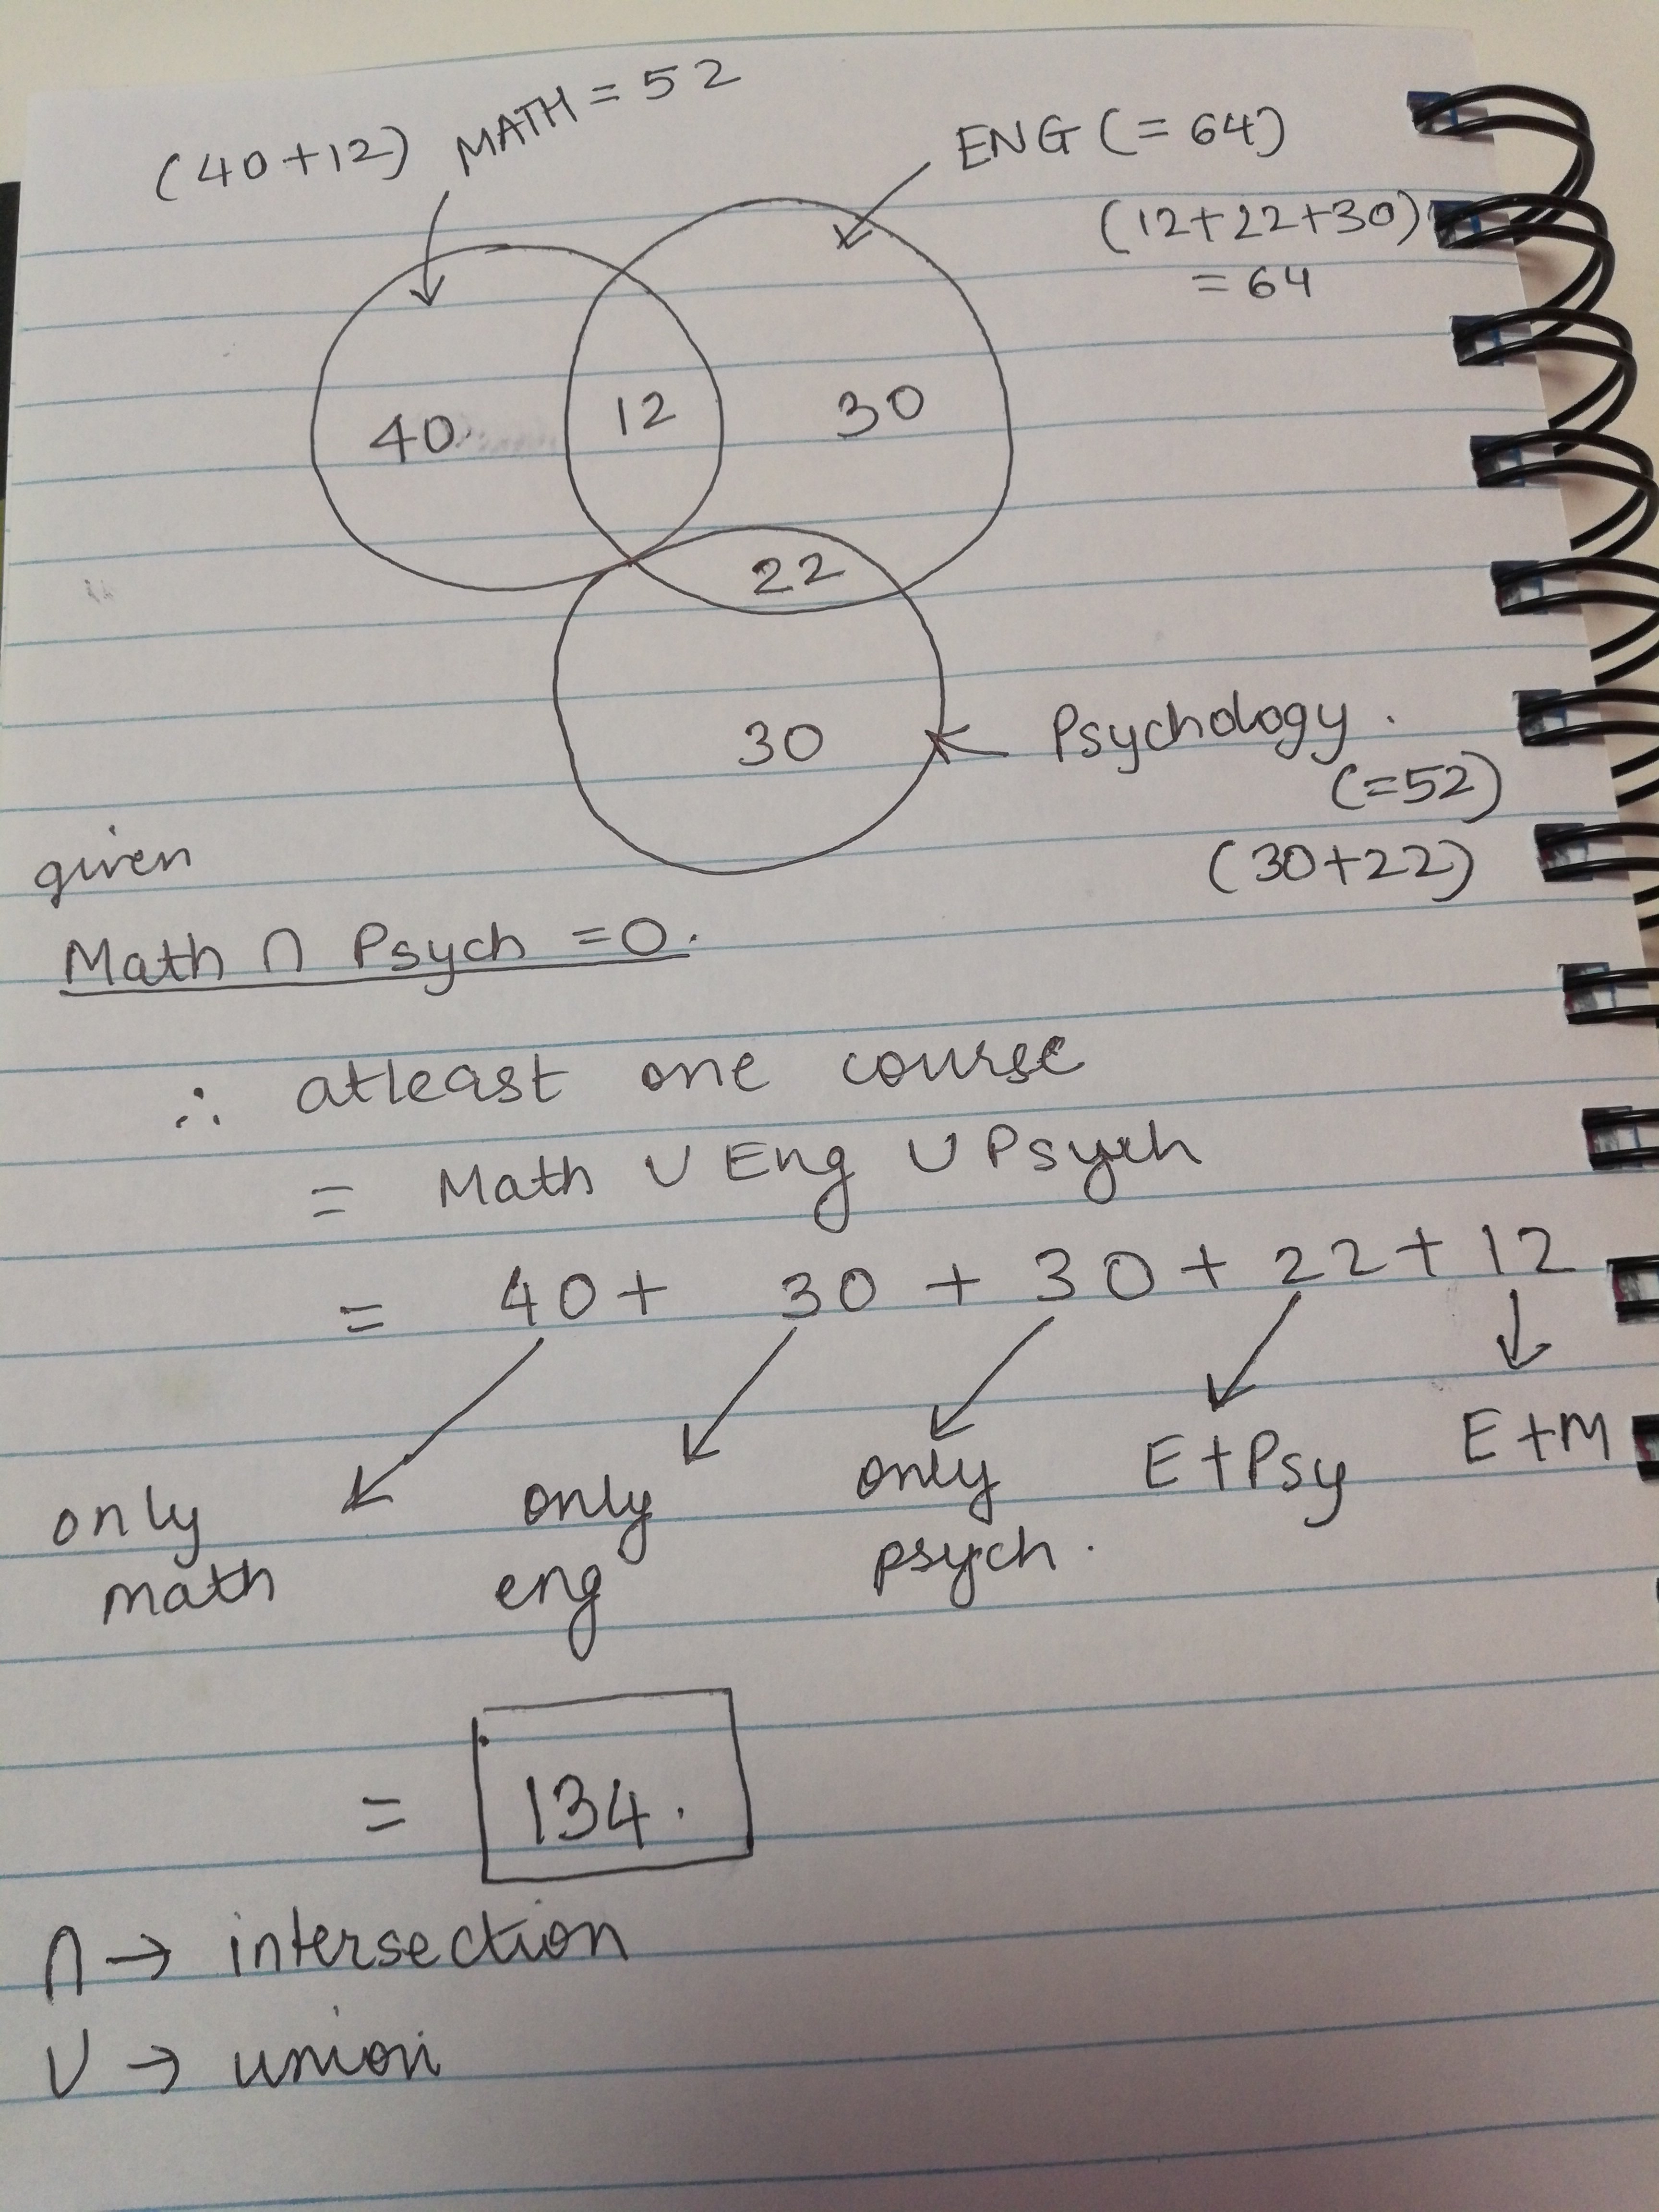 (40+12) MATH = 52
ENG (= 64)
(12+22+30)
= 64
40
12
30
22
30
Psychology.
(=52)
(30+22)
given
Math ∩ Psych = 0.
∴ atleast one course
= Math ∪ Eng ∪ Psych
= 40 + 30 + 30 + 22 + 12
only math
only eng
only psych.
E+Psy
E+M
= 134.
∩ → intersection
∪ → union